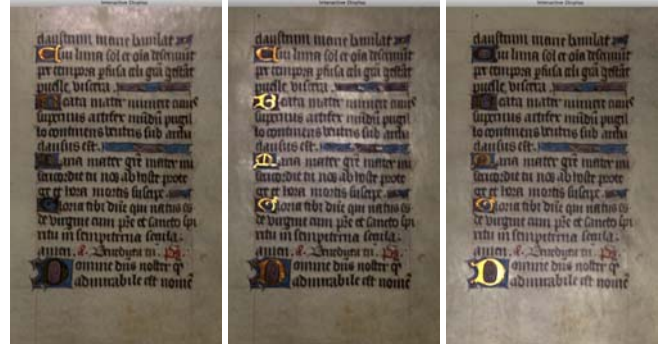 Interactive Display
claustrum marie baiulat
Cui luna sol et oīa deserviūt
per tempora pfusa celi grā gestāt
puelle viscera.
Beata mater munere cuiꝰ
supernus artifex mūdū pugil
lo continens ventris sub archa
clausus est.
Maria mater grē mater mi
sericordie tu nos ab hoste prote
ge et hora mortis suscipe.
Gloria tibi dñe qui natus es
de virgine cum pre et sancto spi
ritu in sempiterna secula.
amen. Benedicta tu. ps.
Domine dñs noster q̄
admirabile est nomē
Interactive Display
claustrum marie baiulat
Cui luna sol et oīa deserviūt
per tempora pfusa celi grā gestāt
puelle viscera.
Beata mater munere cuiꝰ
supernus artifex mūdū pugil
lo continens ventris sub archa
clausus est.
Maria mater grē mater mi
sericordie tu nos ab hoste prote
ge et hora mortis suscipe.
Gloria tibi dñe qui natus es
de virgine cum pre et sancto spi
ritu in sempiterna secula.
amen. Benedicta tu. ps.
Domine dñs noster q̄
admirabile est nomē
Interactive Display
claustrum marie baiulat
Cui luna sol et oīa deserviūt
per tempora pfusa celi grā gestāt
puelle viscera.
Beata mater munere cuiꝰ
supernus artifex mūdū pugil
lo continens ventris sub archa
clausus est.
Maria mater grē mater mi
sericordie tu nos ab hoste prote
ge et hora mortis suscipe.
Gloria tibi dñe qui natus es
de virgine cum pre et sancto spi
ritu in sempiterna secula.
amen. Benedicta tu. ps.
Domine dñs noster q̄
admirabile est nomē